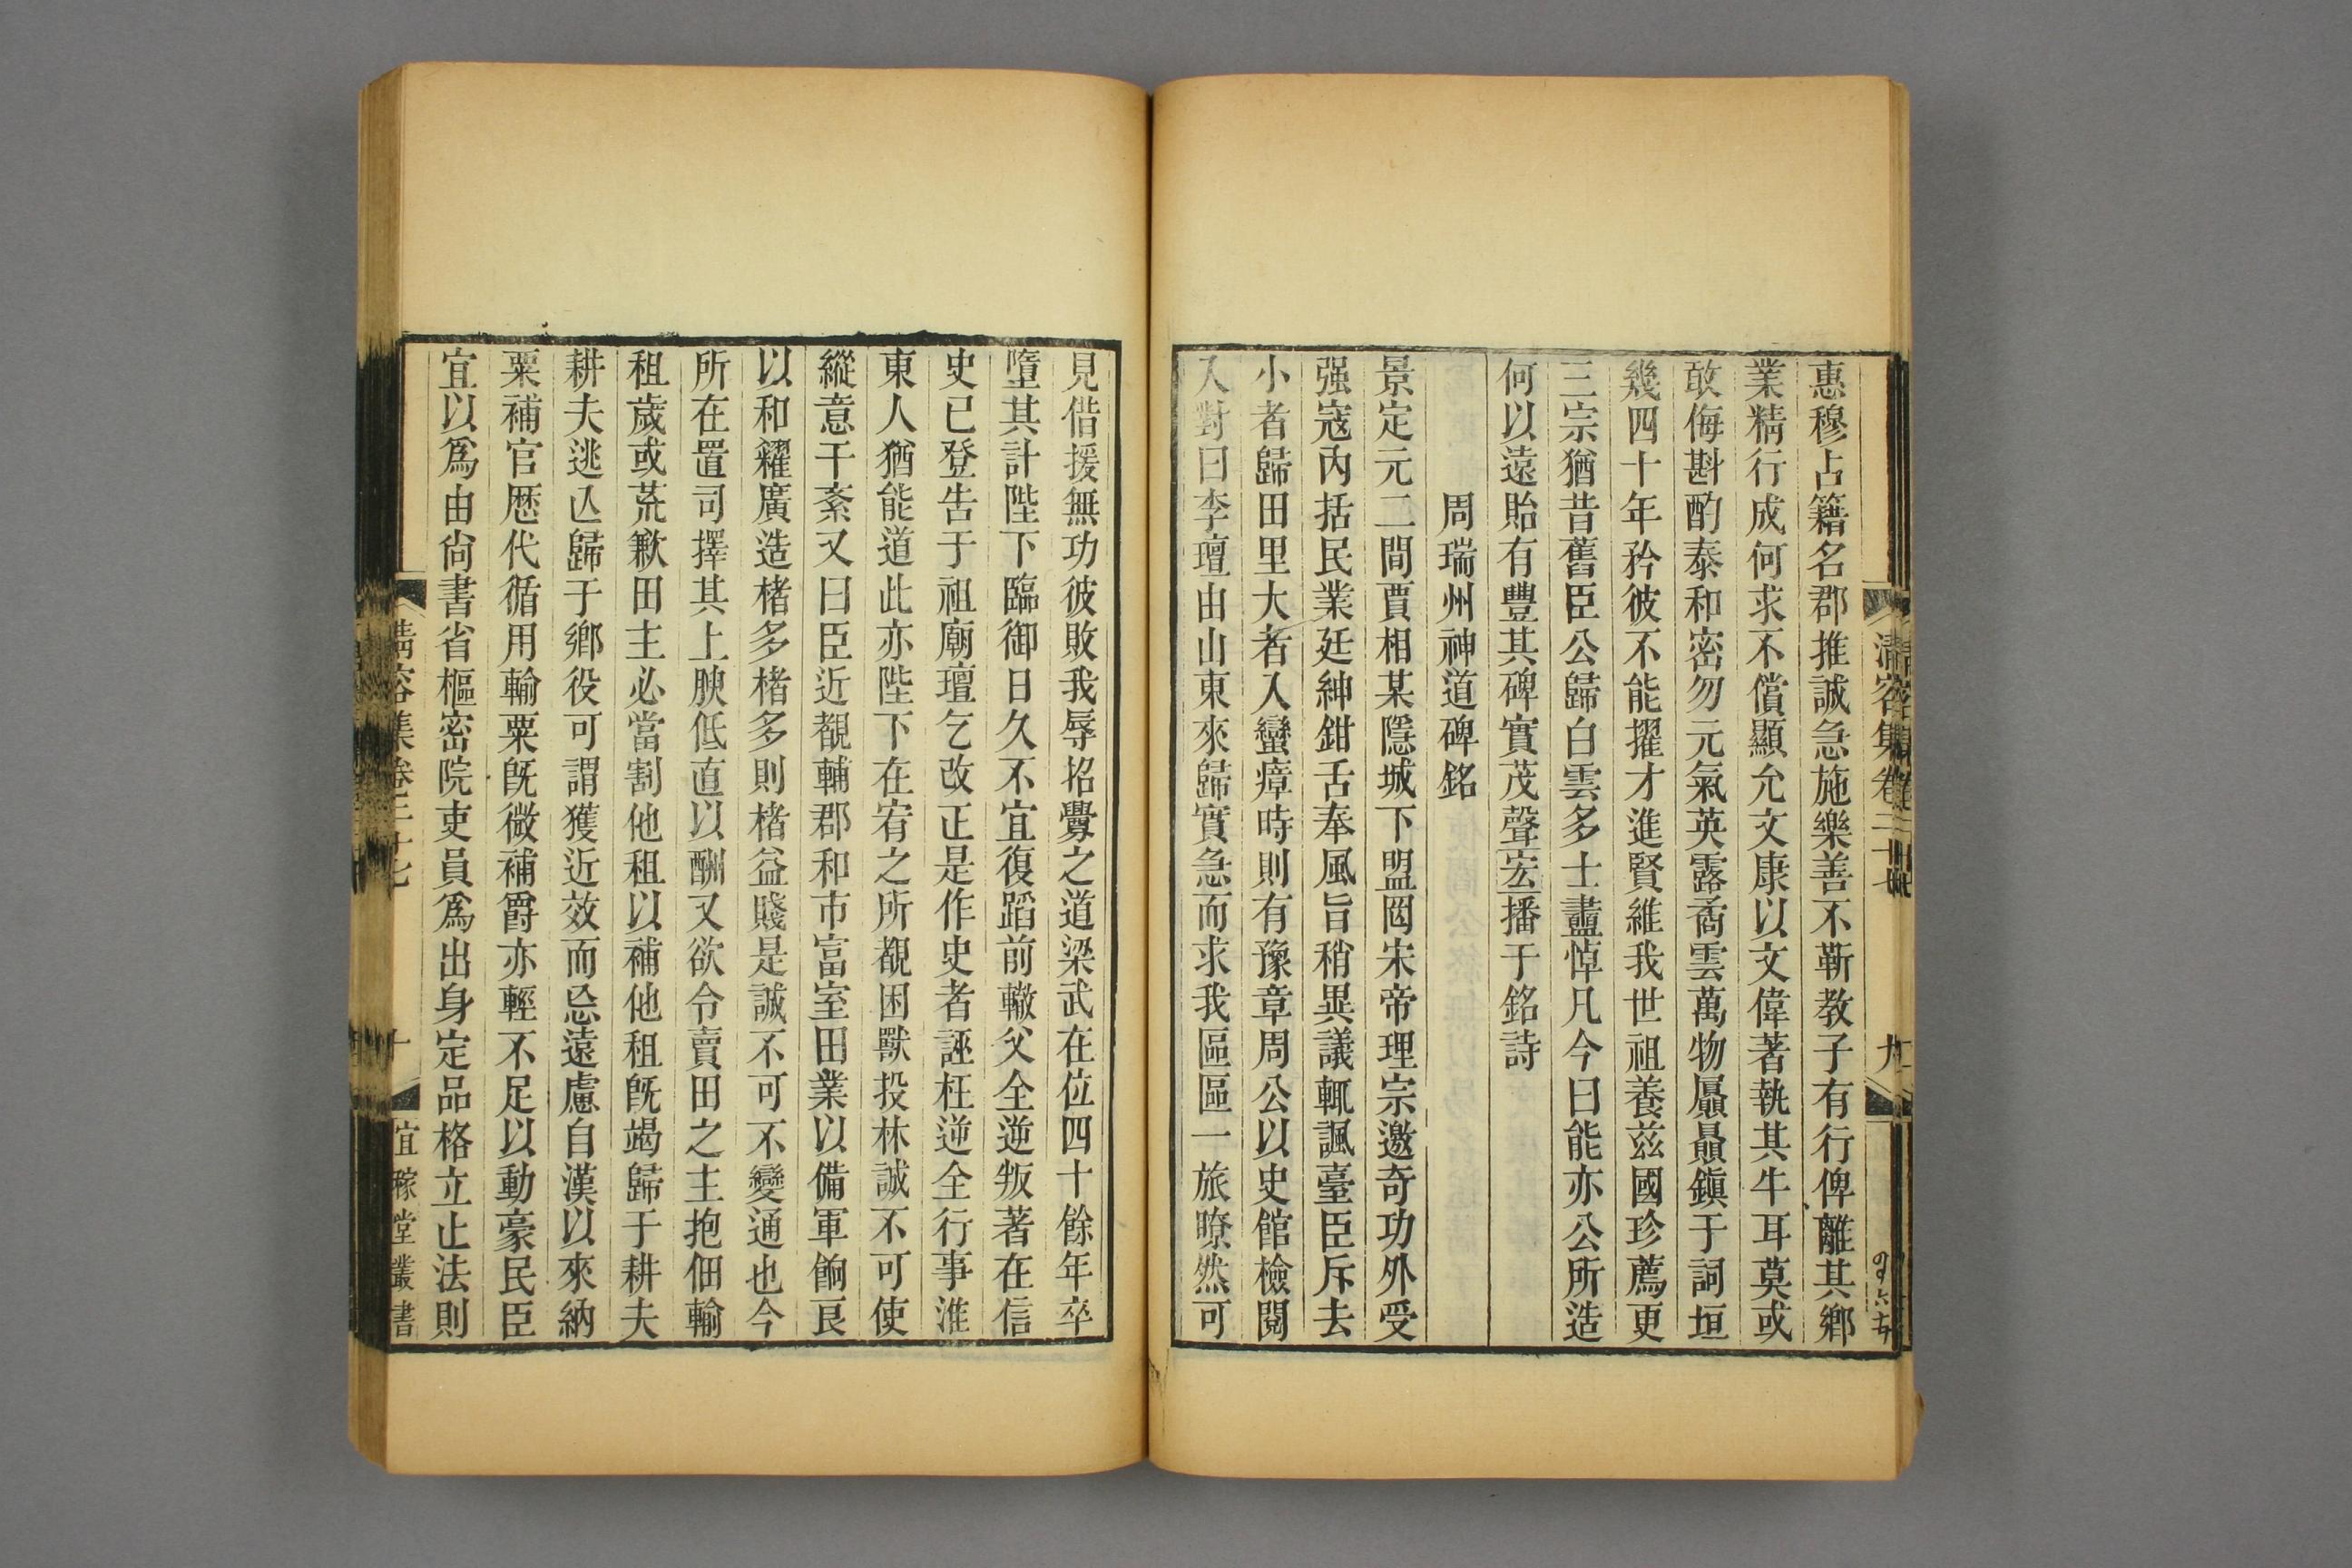 清容集卷二十七
九
惠穆占籍名郡推誠急施樂善不靳教子有行俾離其鄉
業精行成何求不償顯允文康以文偉著執其牛耳莫或
敢侮斟酌泰和密勿元氣英露矞雲萬物屭贔鎭于詞垣
幾四十年矜彼不能擢才進賢維我世祖養兹國珍薦更
三宗猶昔舊臣公歸白雲多士盡悼凡今曰能亦公所造
何以遠貽有豐其碑實茂聲宏播于銘詩
周瑞州神道碑銘
景定元二間賈相某隱城下盟罔宋帝理宗邀奇功外受
强寇内括民業廷紳鉗舌奉風旨稍異議輒諷臺臣斥去
小者歸田里大者入蠻瘴時則有豫章周公以史館檢閱
入對曰李璮由山東來歸實急而求我區區一旅瞭然可
見偕援無功彼敗我辱招釁之道梁武在位四十餘年卒
墮其計陛下臨御日久不宜復蹈前轍父全逆叛著在信
史已登告于祖廟璮乞改正是作史者誣枉逆全行事淮
東人猶能道此亦陛下在宥之所覩困獸投林誠不可使
縱意干紊又曰臣近覩輔郡和市富室田業以備軍餉艮
以和糴廣造楮多楮多則楮益賤是誠不可不變通也今
所在置司擇其上腴低直以酬又欲令賣田之主抱佃輸
租歲或荒歉田主必當割他租以補他租旣竭歸于耕夫
耕夫逃亾歸于鄉役可謂獲近效而忘遠慮自漢以來納
粟補官歴代循用輸粟旣微補爵亦輕不足以動豪民臣
宜以爲由尙書省樞密院吏員爲出身定品格立止法則
清容集卷二十七
十
宜稼堂叢書